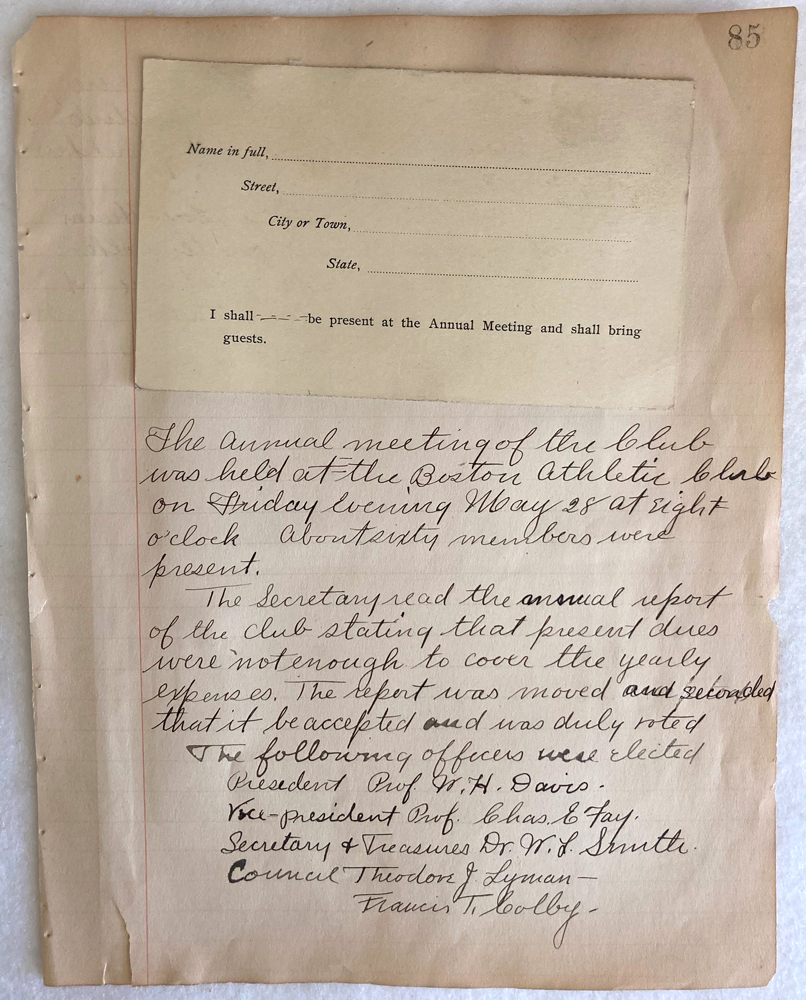 85
Name in full,
Street,
City or Town,
State,
I shall be present at the Annual Meeting and shall bring
guests.
The annual meeting of the Club
was held at the Boston Athletic Club
on Friday Evening May 28 at Eight
o'clock About sixty members were
present.
The Secretary read the annual report
of the club stating that present dues
were not enough to cover the yearly
expenses. The report was moved and seconded
that it be accepted and was duly voted
The following officers were elected
President Prof. W. H. Davis.
Vice-president Prof. Chas. E Fay.
Secretary & Treasures Dr. W. L. Smith.
Council Theodore J. Lyman—
Francis T. Colby-